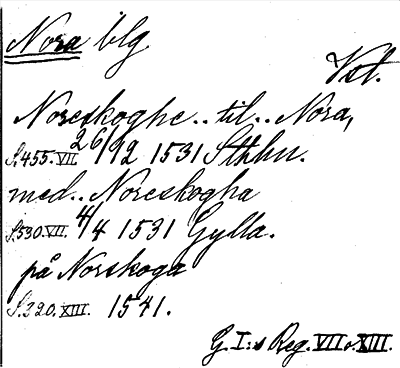 Nora blg
Vst.
Noreskoghe.. til.. Nora,
S.455.VII. 26/12 1531 Sthlm.
med.. Noreskogha
S.530.VII. 4/4 1531 Gylla.
på Norskoga
S.320.XIII. 1541.
G.I:s Reg. VII o. XIII.